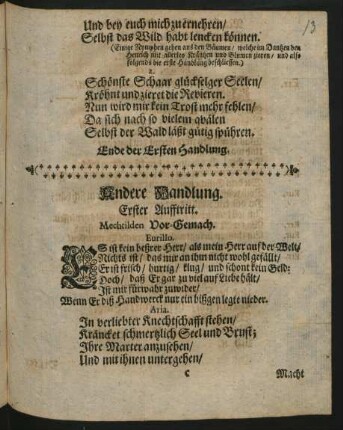 13
Und bey euch mich zu ernehren/
Selbst das Wild habt lencken können.
(Einige Nymphen gehen aus den Bäumen/ welche im Dantzen den
Heinrich mit allerley Kräntzen und Blumen zieren/ und also
folgends die erste Handlung beschliessen.)
2.
Schönste Schaar glückselger Seelen/
Kröhnt und zieret die Revieren.
Nun wird mir kein Trost mehr fehlen/
Da sich nach so vielem qvälen
Selbst der Wald läßt gütig spühren.
Ende der Ersten Handlung.
Andere Handlung.
Erster Aufftritt.
Mechtilden Vor-Gemach.
Eurillo.
ES ist kein beßrer Herr/ als mein Herr auf der Welt/
Nichts ist/ das mir an ihm nicht wohl gefällt/
Er ist frisch/ hurtig/ klug/ und schont kein Geld:
Doch/ daß Er gar zu viel auf Liebe hält/
Ist mir fürwahr zuwider/
Wenn Er diß Handwerck nur ein bißgen legte nieder.
Aria.
In verliebter Knechtschafft stehen/
Kräncket schmertzlich Seel und Brust;
Ihre Marter anzusehen/
Und mit ihnen untergehen/
C Macht